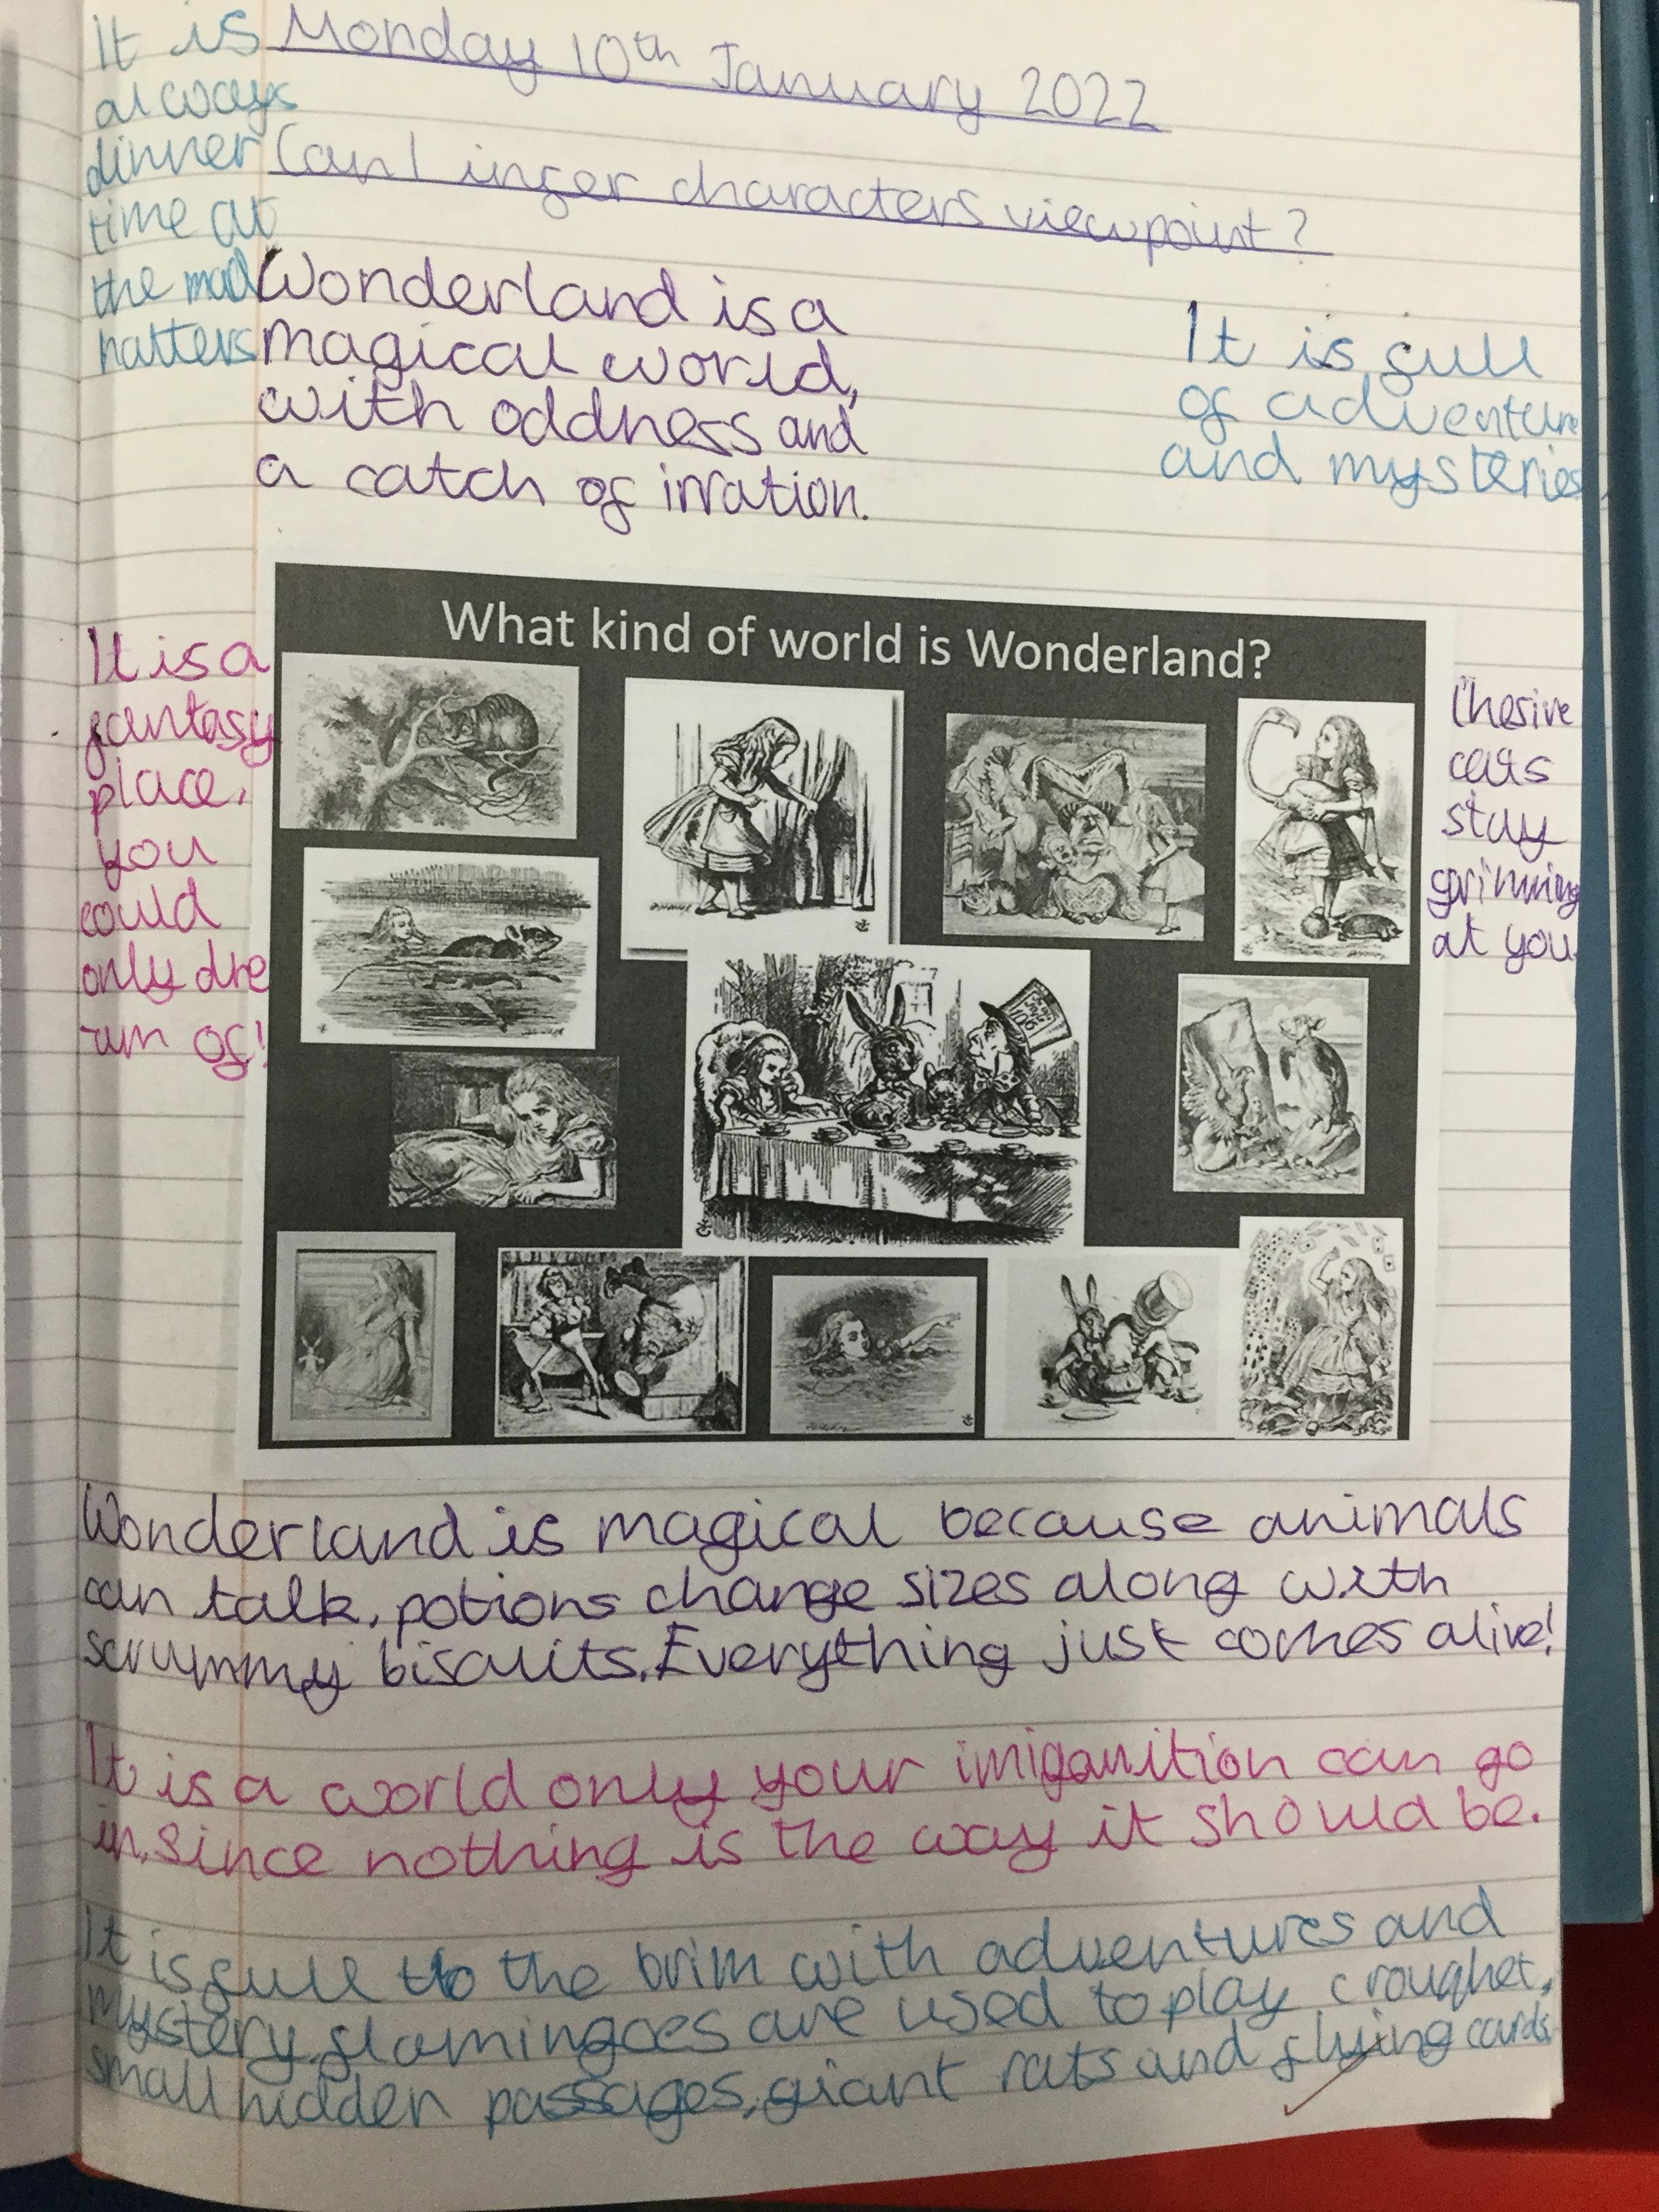 Monday 10th January 2022
Can I infer characters viewpoint?
It is
always
dinner
time at
the mad
hatters
Wonderland is a
magical world,
with oddness and
a catch of irration.
It is full
of adventure
and mysteries
What kind of world is Wonderland?
It is a
fantasy
place,
you
could
only dre
um of!
Chesive
cats
stay
grinning
at you
Wonderland is magical because animals
can talk, potions change sizes along with
scrummy biscuits. Everything just comes alive!
It is a world only your imiganition can go
in, since nothing is the way it should be.
It is full to the brim with adventures and
mystery, flamingoes are used to play croughet,
small hidden passages, giant rats and flying cards